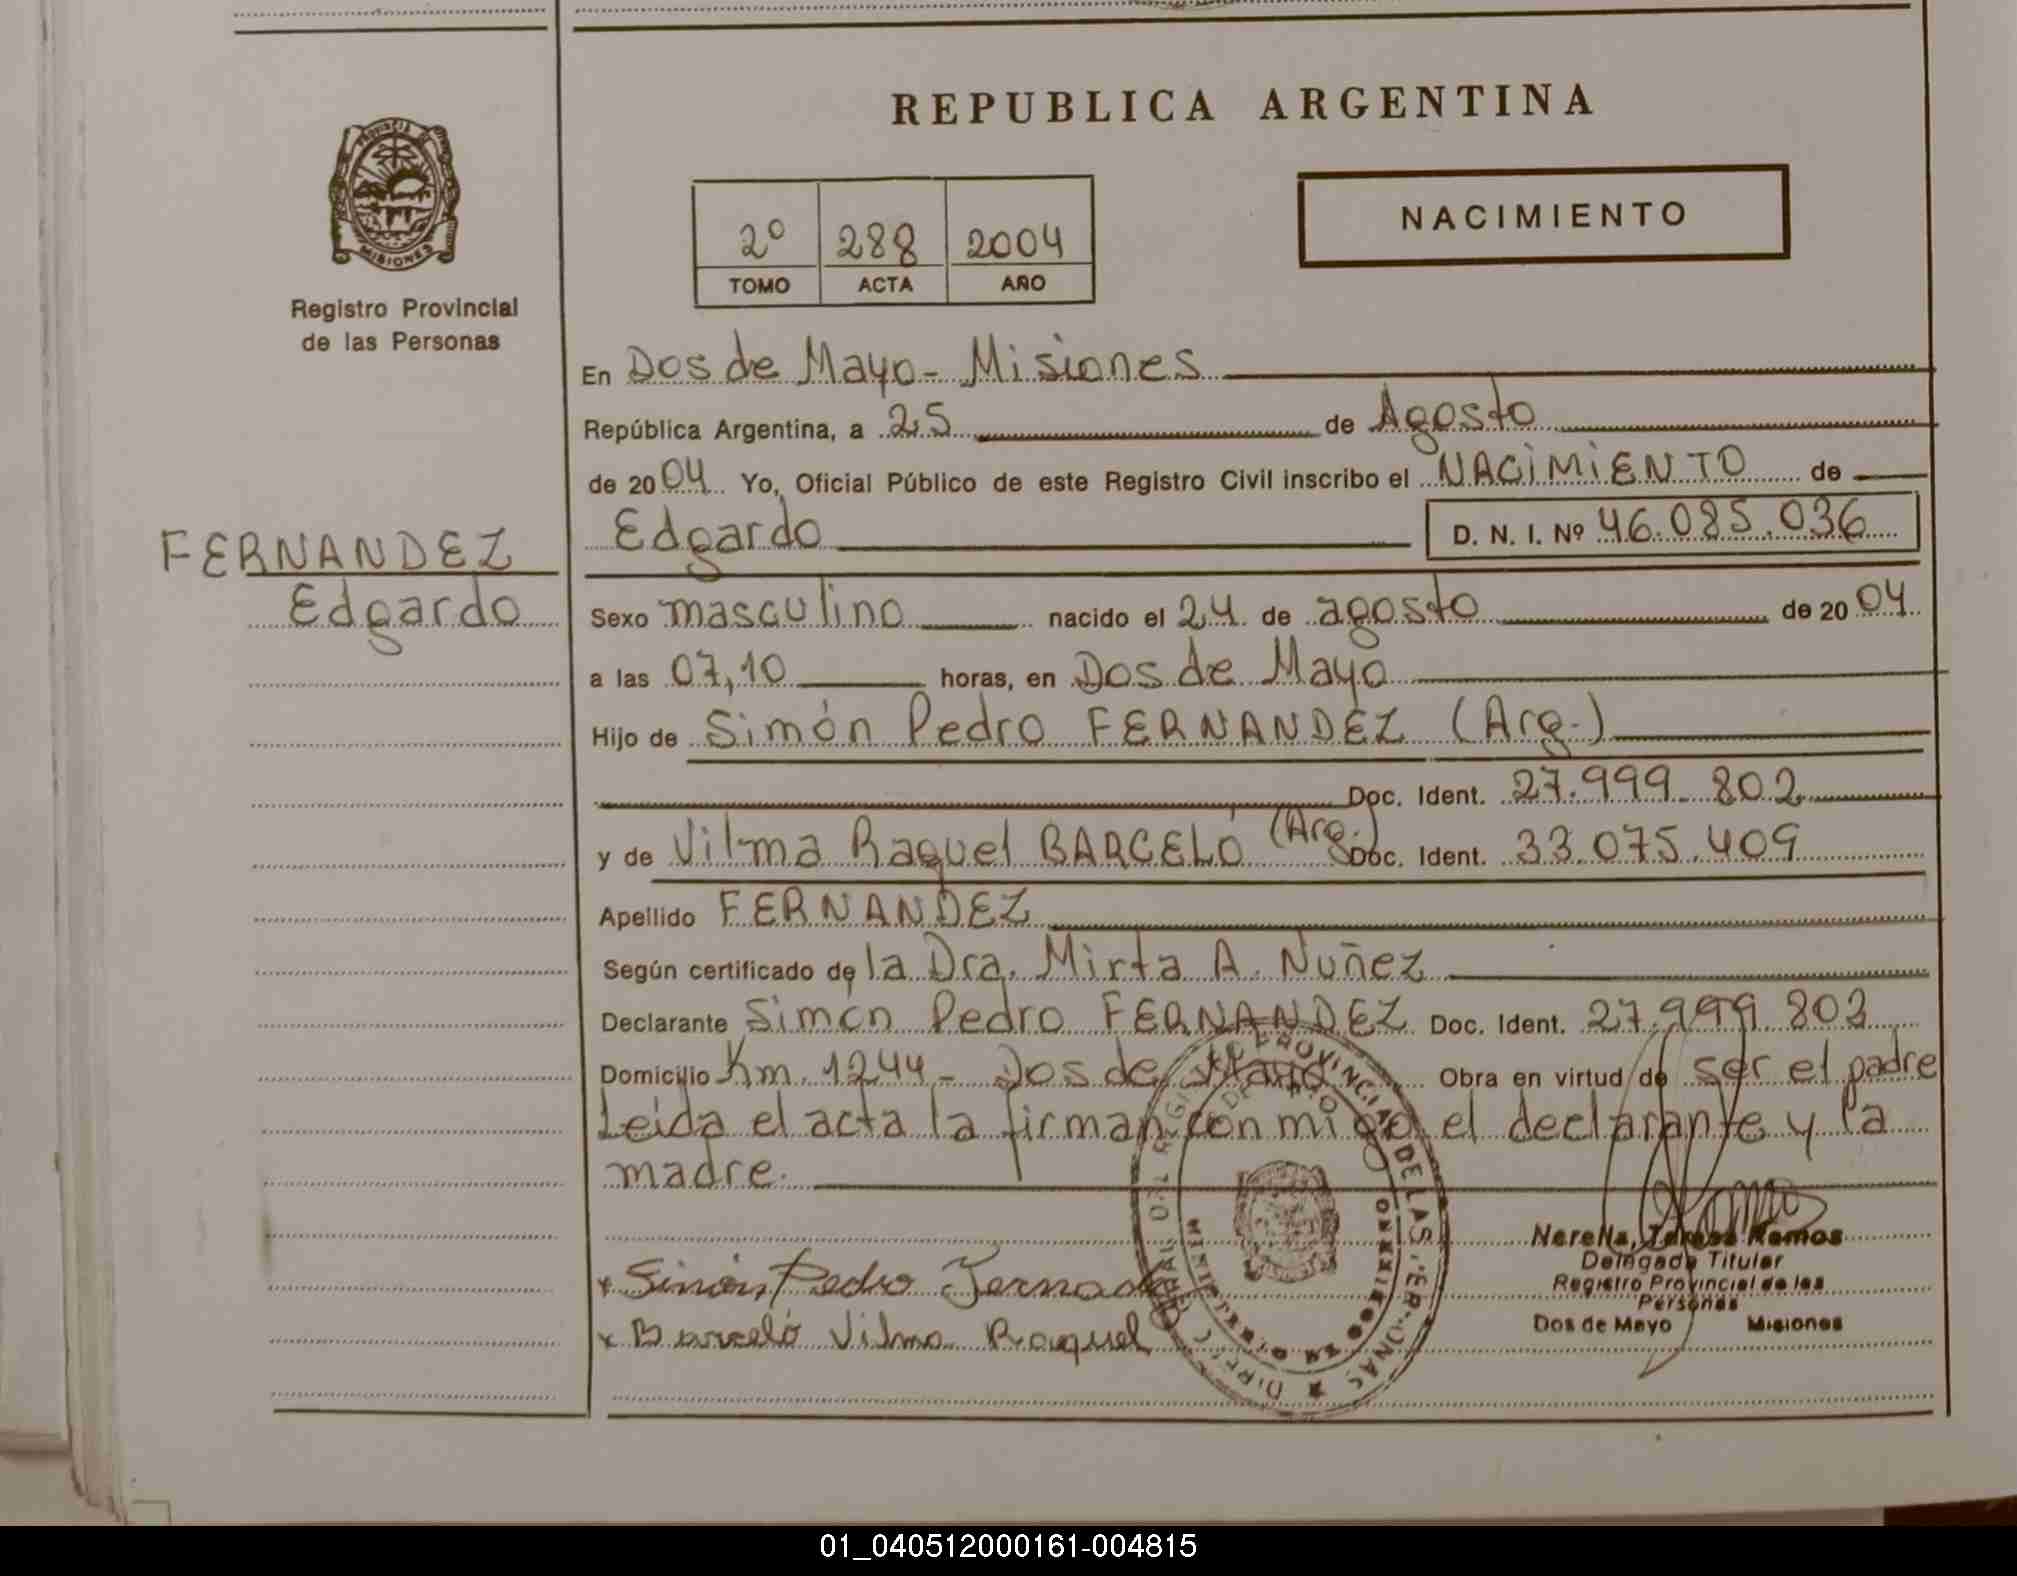 REPUBLICA ARGENTINA
NACIMIENTO
2º 288 2004
TOMO ACTA AÑO
PROVINCIA DE
MISIONES
Registro Provincial
de las Personas
En Dos de Mayo - Misiones
República Argentina, a 25 de Agosto
de 2004 Yo, Oficial Público de este Registro Civil inscribo el NACIMIENTO de
Edgardo D. N. I. Nº 46.085.036
FERNANDEZ
Edgardo
Sexo masculino nacido el 24 de agosto de 2004
a las 07,10 horas, en Dos de Mayo
Hijo de Simón Pedro FERNANDEZ (Arg.)
Doc. Ident. 27.999.802
y de Vilma Raquel BARCELÓ (Arg.) Doc. Ident. 33.075.409
Apellido FERNANDEZ
Según certificado de la Dra. Mirta A. Nuñez
Declarante Simón Pedro FERNANDEZ Doc. Ident. 27.999.802
Domicilio Km. 1244 - Dos de Mayo Obra en virtud de ser el padre
Leída el acta la firman conmigo el declarante y la
madre.
x Simón Pedro Fernandez
x Barceló Vilma Raquel
Nerella, Teresa Ramos
Delegada Titular
Registro Provincial de las
Personas
Dos de Mayo Misiones
01_040512000161-004815